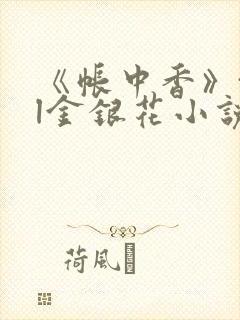 《帳中香》
|金銀花小說
荷風